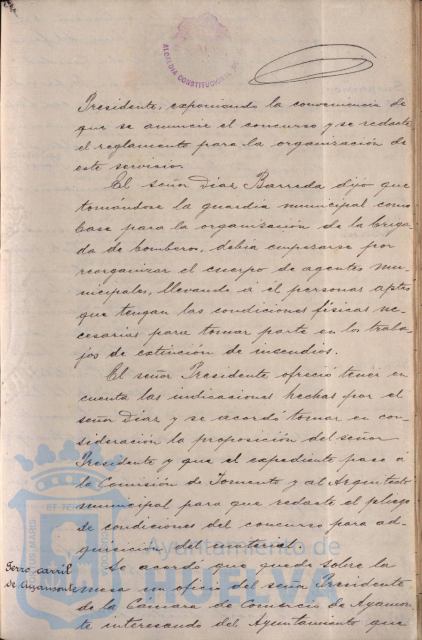 ALCALDIA CONSTITUCIONAL
Presidente, exponiendo la conveniencia de
que se anuncie el concurso y se redacte
el reglamento para la organización de
este servicio.
El señor Diaz Barreda dijo que
tomándose la guardia municipal como
base para la organisación de la briga-
da de bomberos, debia empesarse por
reorganizar el cuerpo de agentes mu-
nicipales, llevando á él personas aptas
que tengan las condiciones físicas ne-
cesarias para tomar parte en los traba-
jos de extinción de incendios.
El señor Presidente ofreció tener en
cuenta las indicaciones hechas por el
señor Diaz y se acordó tomar en con-
sideración la proposición del señor
Presidente y que el expediente pase á
la Comisión de Fomento y al Arquitecto
municipal para que redacte el pliego
de condiciones del concurso para ad-
quisición del material.
Ferro carril
de Ayamonte
Se acordó que quede sobre la
mesa un oficio del señor Presidente
de la Cámara de Comercio de Ayamon-
te interesando del Ayuntamiento que
Ayuntamiento de
HUELVA